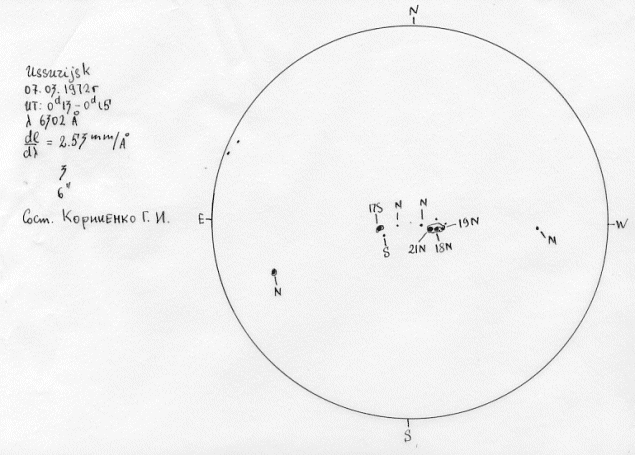 Ussurijsk
07.03.1972г
UT: 0ᵈ13 – 0ᵈ15
λ 6302 Å
dl/dλ = 2.53 mm/Å
3
6"
Сост. Корниенко Г. И.
N
E
W
S
17S
N
N
19N
S
21N
18N
N
N